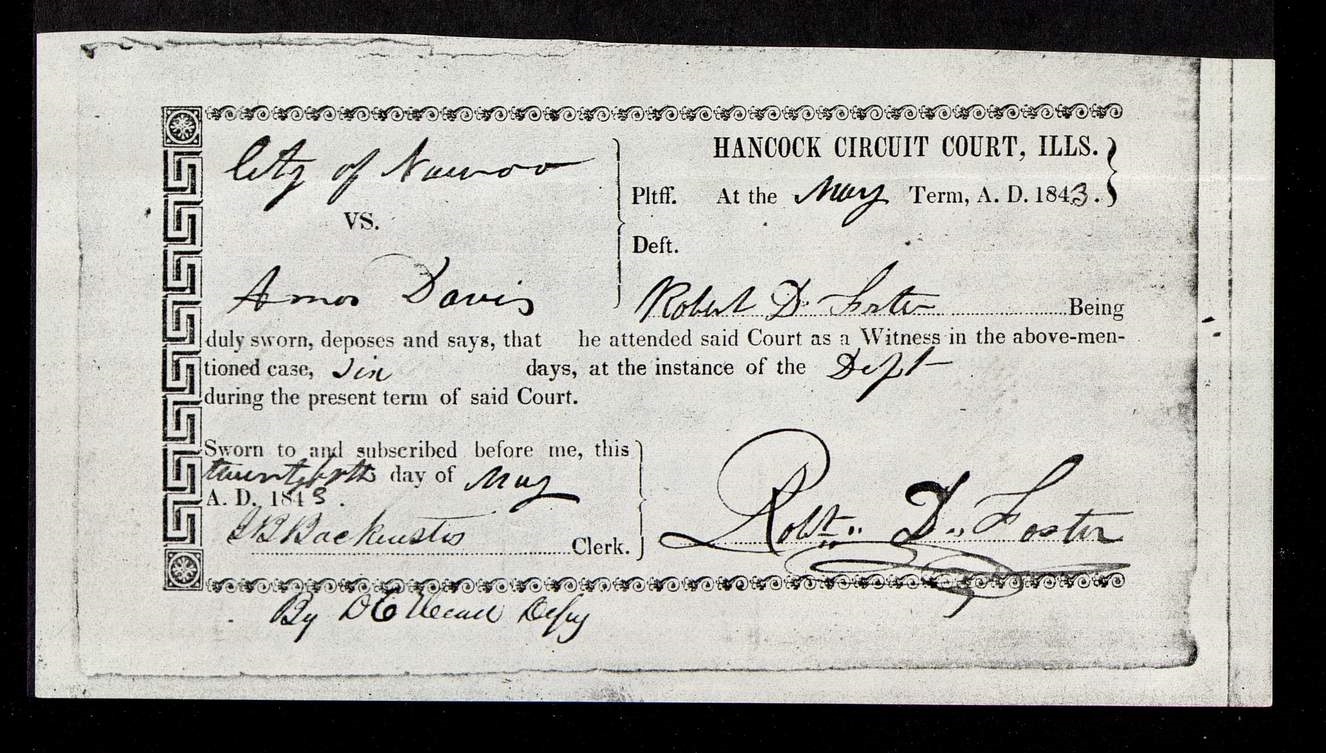 HANCOCK CIRCUIT COURT, ILLS.
City of Nauvoo Pltff. At the May Term, A. D. 1843.
VS.
Deft.
Amos Davis Robert D. Foster Being
duly sworn, deposes and says, that he attended said Court as a Witness in the above-men-
tioned case, Six days, at the instance of the Deft
during the present term of said Court.
Sworn to and subscribed before me, this
day of May
A. D. 1843.
J B Backenstos Clerk.
Robt. D. Foster
By D E Head Depy